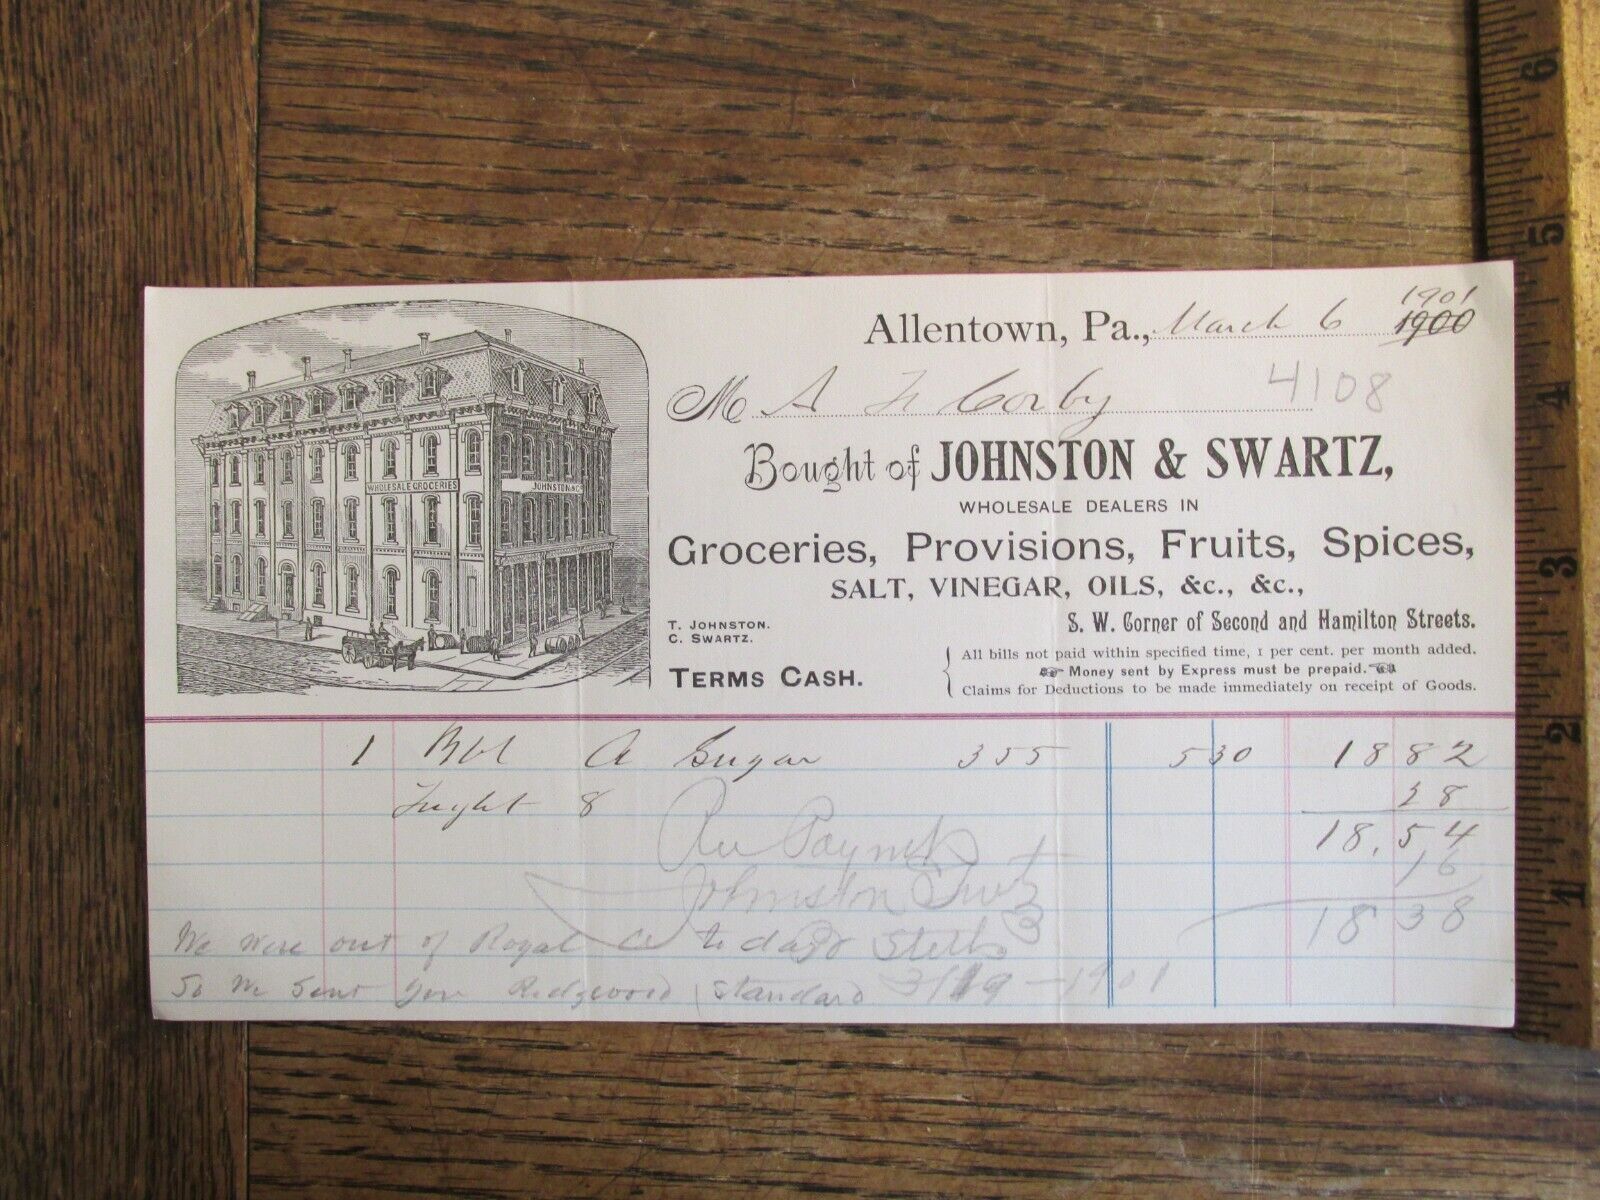 Allentown, Pa., March 6 1901
1900
M A F Corby 4108
Bought of JOHNSTON & SWARTZ,
WHOLESALE DEALERS IN
Groceries, Provisions, Fruits, Spices,
SALT, VINEGAR, OILS, &c., &c.,
T. JOHNSTON.
C. SWARTZ.
S. W. Corner of Second and Hamilton Streets.
TERMS CASH.
All bills not paid within specified time, 1 per cent. per month added.
Money sent by Express must be prepaid.
Claims for Deductions to be made immediately on receipt of Goods.
WHOLESALE GROCERIES
JOHNSTON &
1 Bbl A Sugar 355 530 18 82
8 28
18.54
Rec Paymt 16
Johnston Swtz 18 38
We were out of Royal A to day
So We Sent you Ridgewood standard 3/19-1901
1
2
3
4
5
6